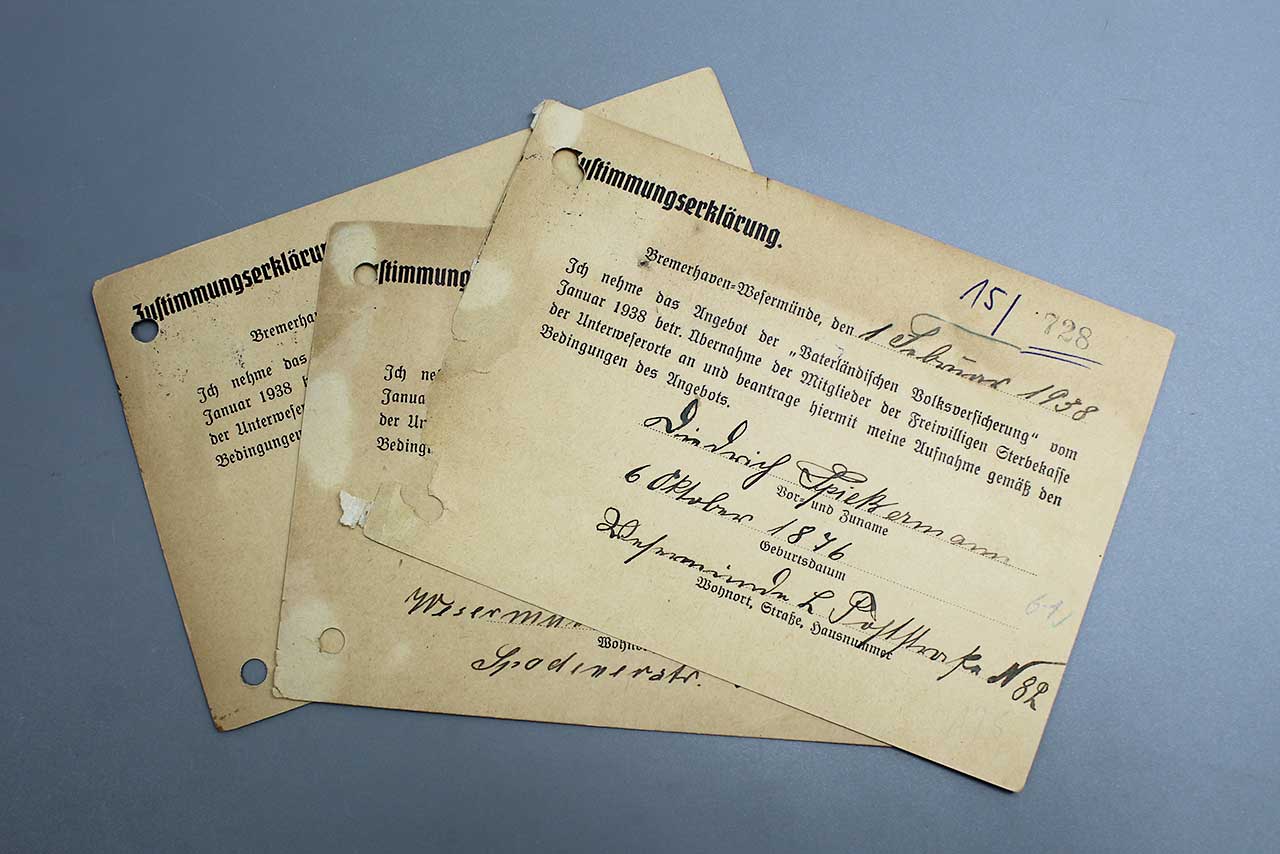 Zustimmungserklärung.
15/ 728
Bremerhaven-Wesermünde, den 1 Februar 1938
Ich nehme das Angebot der „Vaterländischen Volksversicherung" vom
Januar 1938 betr. Übernahme der Mitglieder der Freiwilligen Sterbekasse
der Unterweserorte an und beantrage hiermit meine Aufnahme gemäß den
Bedingungen des Angebots.
Diedrich Spiekermann
Vor- und Zuname
6 Oktober 1876
Geburtsdatum
Wesermünde L Poststraße N 82
Wohnort, Straße, Hausnummer
Zustimmungserklärun
Bremerha
Ich nehme das
Januar 1938
der Unterweser
Bedingungen
Zustimmung
Ich ne
Januar
der Un
Beding
Weserm
Wohno
Spadenerstr.